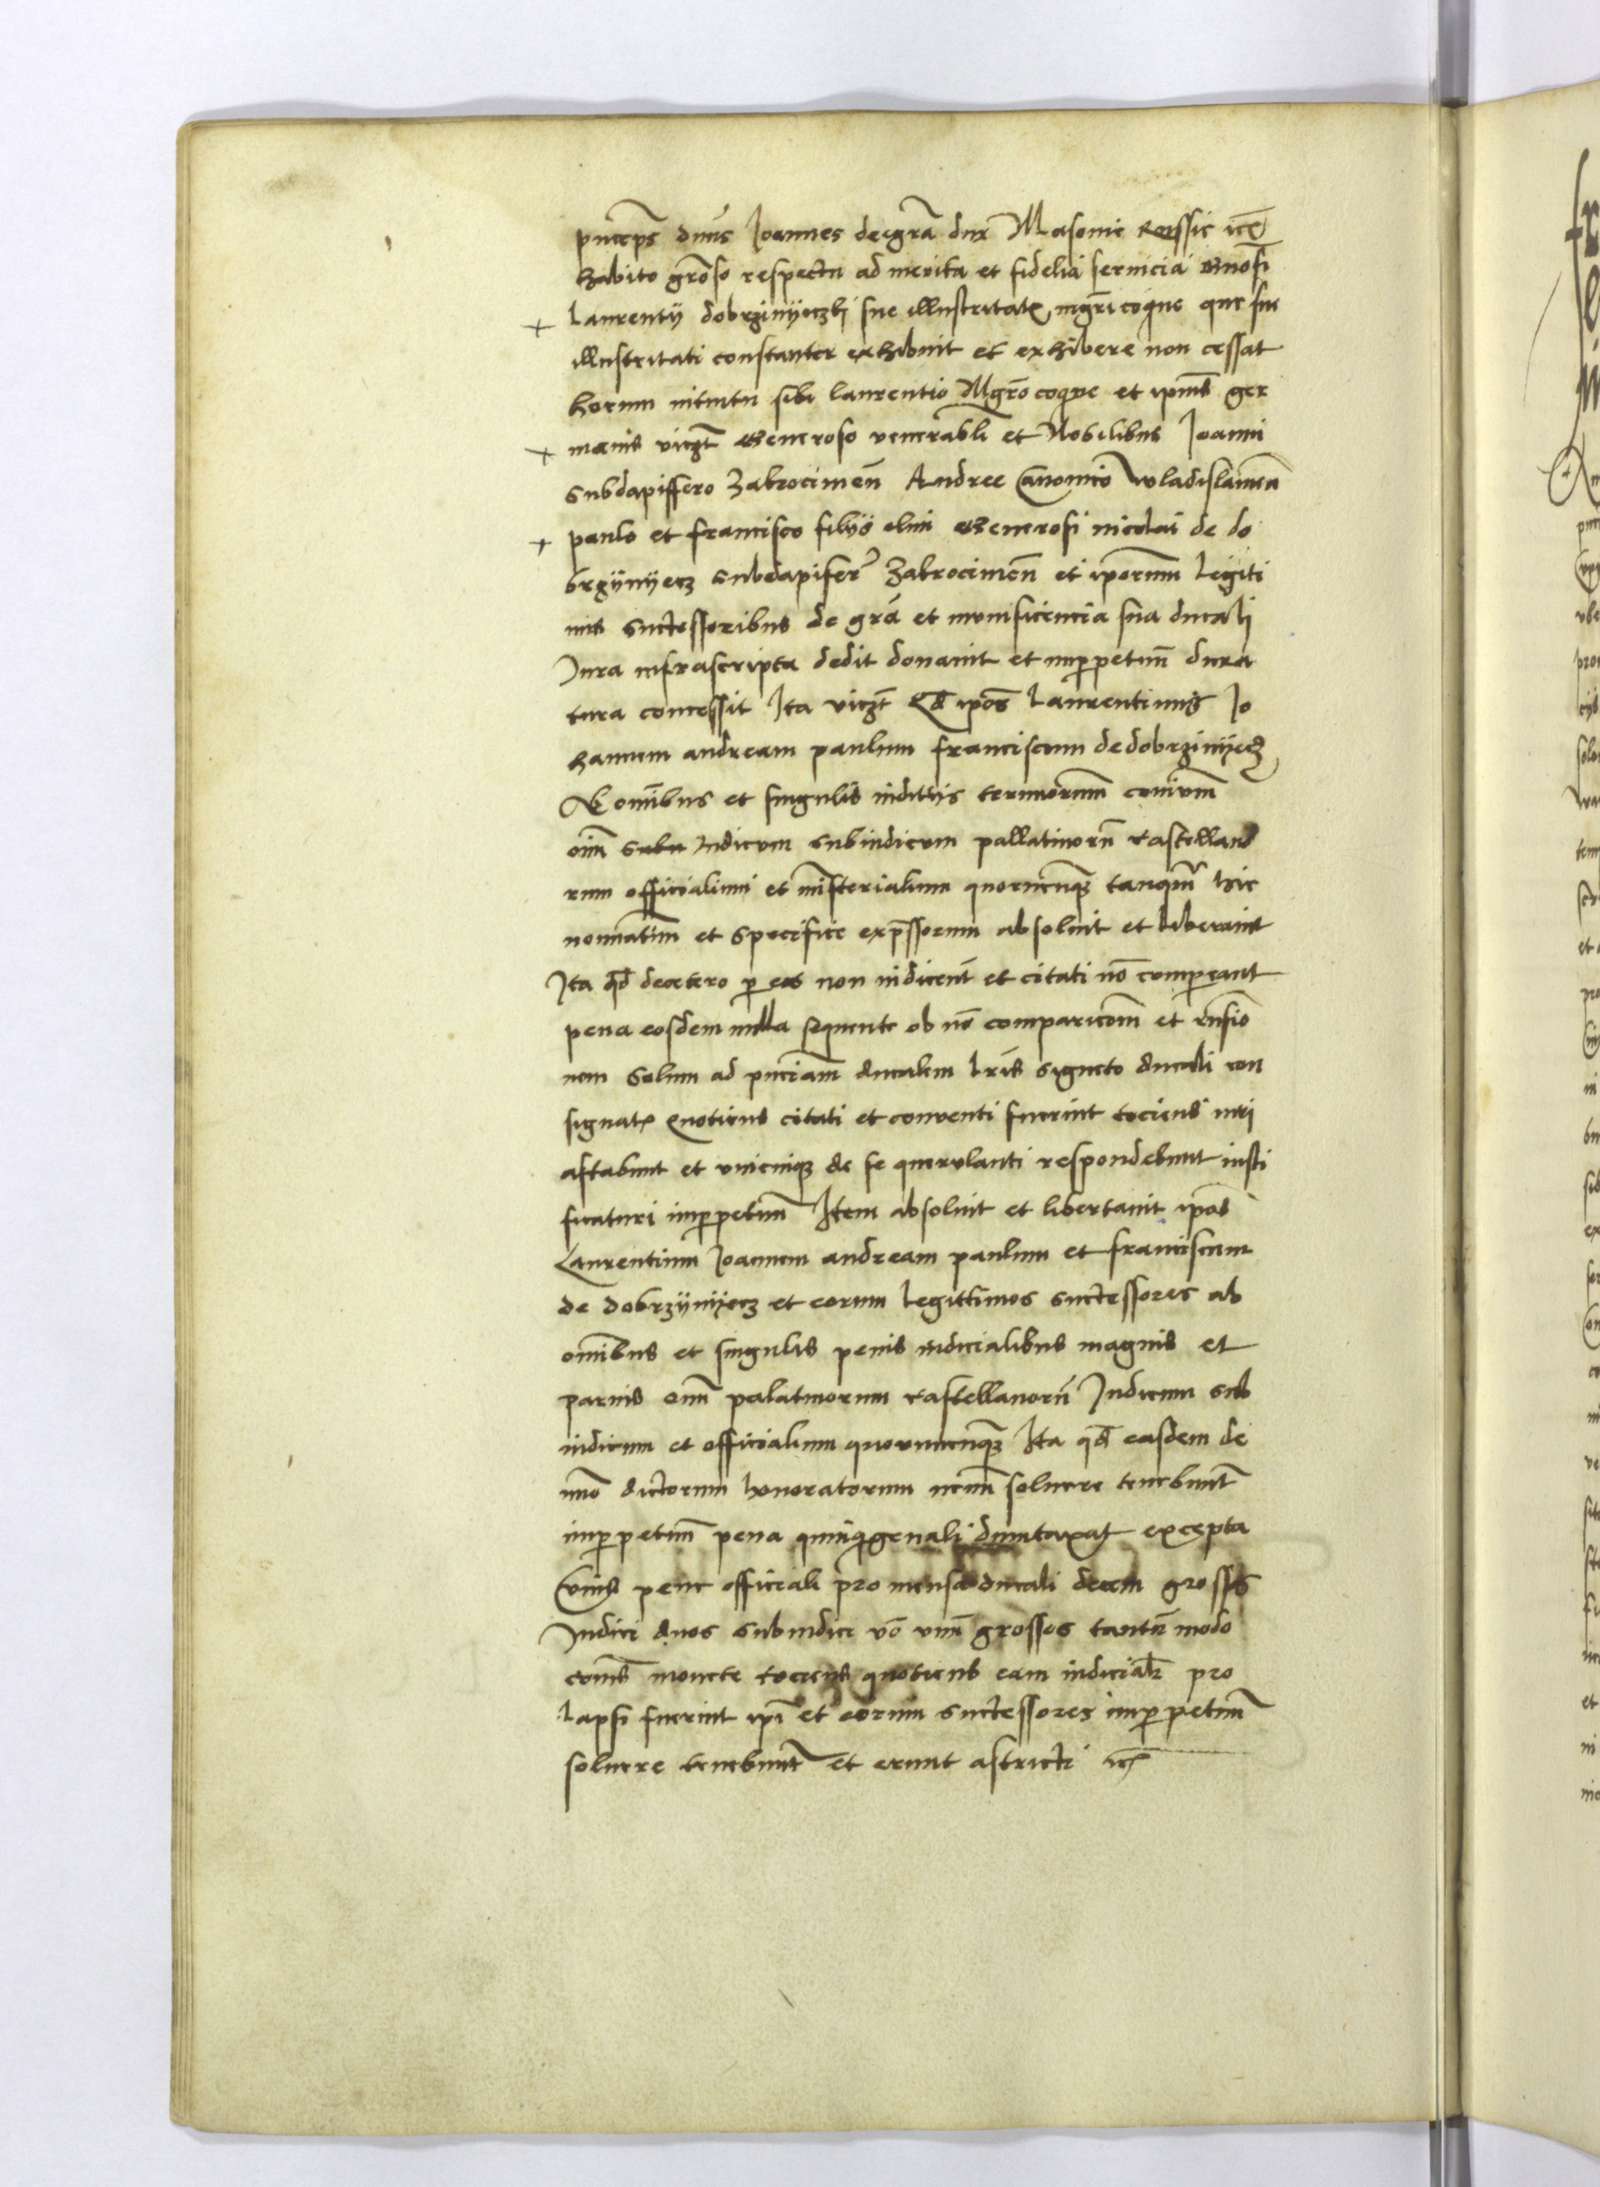 princeps dnus Joannes dei gra dux Masouie Russie etc
habito groso respectu ad merita et fidelia seruicia Gnosi
+ Laurentij dobrzinyeczki sue illustritatis mgri coqne que sue
illustritati constanter exhibuit et exhibere non cessat
horum intuitu sibi laurentio Mgro coqne et ipius ger
+ manis viczt Generoso venerabli et Nobilibus Joanni
subdapiffero Zakrocimen Andree Canonico wladislauien
+ paulo et francisco filijs olim Generosi nicolai de do
brzynyecz subdapiferi Zakrocimen et iporum legiti
mis successoribus de gra et munificencia sua ducali
Jura infrascripta dedit donauit et imperpetuu dura
tura concessit Ita viczt Qd ipos Laurentium Jo
hannem andream paulum franciscum de dobrzinyecz
Ab omibus et singulis iudiciis terrinorum
oim Iudicum subiudicum pallatinoru castellano
rum officialium et misterialium quorumcunqz tanqm hic
nominatim et specifice expssorum absoluit et liberauit
Ita qd decetero p eos non iudicent et citati no compareant
pena eosdem nulla sequente ob no comparicom et rnsio
nem Solum ad pnciam ducalem lris signeto ducali con
signatis quotiens citati et conuenti fuerint tociens
astabunt et vnicuiqz de se querulanti respondebunt iusti
ficaturi imperpetuum Item absoluit et libertauit ipos
Laurentium Joannem andream paulum et franciscum
de dobrzynyecz et eorum legittimos successores ab
omibus et singulis penis iudicialibus magnis et
paruis oim palatinorum castellanoru Judicum sub
iudicum et officialium quorumcunqz Ita qd easdem de
dictorum honoratorum nemi soluere tenebunt
imperpetuum pena quinqgenali dumtaxat excepta
Cuius pene officiali pro mensa ducali decem grossos
Judici duos subiudici vo vnu grossos tantu modo
cois monete tociens quotiens eam iudicialr pro
lapsi fuerint ipi et eorum successores imperpetuum
soluere tenebunt et erunt astricti etc